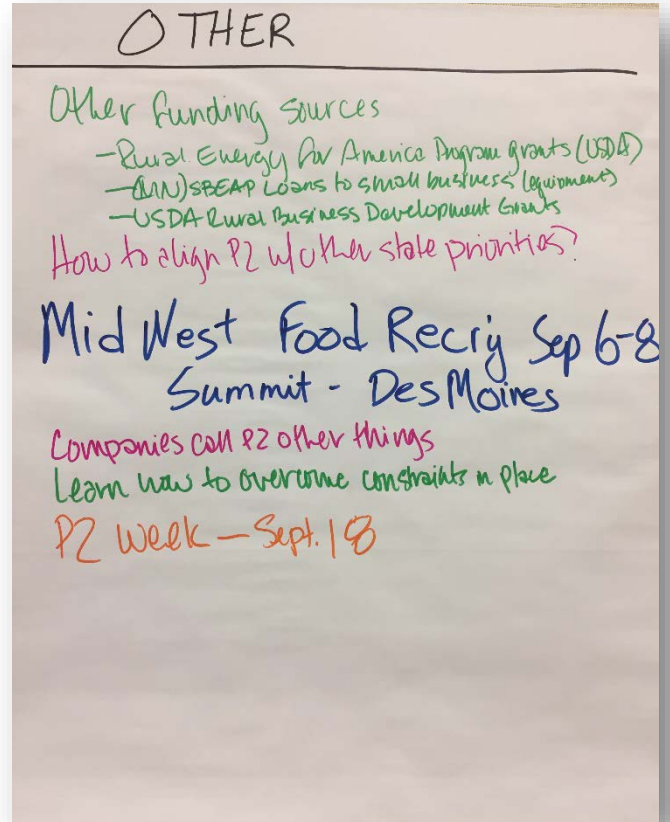 OTHER
Other funding sources
- Rural Energy for America Program grants (USDA)
- (MN) SBEAP Loans to small business (equipment)
- USDA Rural Business Development Grants
How to align P2 w/other state priorities?
Mid West Food Rec'y Sep 6-8
Summit - Des Moines
Companies call P2 other things
Learn how to overcome constraints in place
P2 Week - Sept. 18